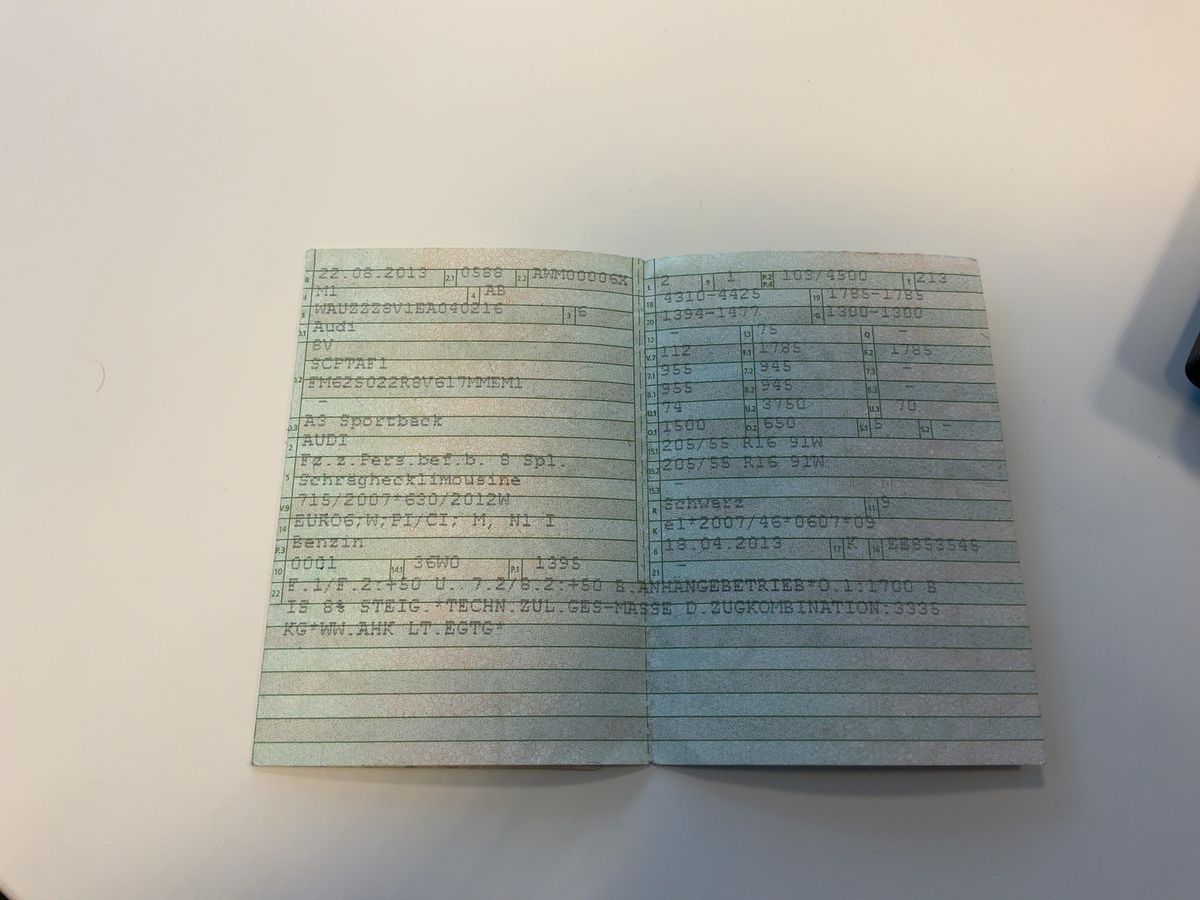 B 22.08.2013 2.1 0588 2.2 AWM00006X
J M1 4 AB
E WAUZZZ8V1EA040216 3 6
D.1 Audi
8V
SCPTAF1
D.2 FM62S022R8V617MMEM1
-
D.3 A3 Sportback
2 AUDI
Fz.z.Pers.bef.b. 8 Spl.
5 Schräghecklimousine
V.9 715/2007*630/2012W
14 EURO6;W;PI/CI; M, N1 I
P.3 Benzin
10 0001 14.1 36W0 P.1 1395
L 2 9 1 P.2 P.4 103/4500 T 213
18 4310-4425 19 1785-1785
20 1394-1477 G 1300-1300
12 - 13 75 Q -
V.7 112 F.1 1785 F.2 1785
7.1 955 7.2 945 7.3 -
8.1 955 8.2 945 8.3 -
U.1 74 U.2 3750 U.3 70
O.1 1500 O.2 650 S.1 5 S.2 -
15.1 205/55 R16 91W
15.2 205/55 R16 91W
15.3 -
R Schwarz 11 9
K e1*2007/46*0607*09
6 18.04.2013 17 K 16 EE853545
21 -
22 F.1/F.2:+50 U. 7.2/8.2:+60 B.ANHÄNGEBETRIEB*O.1:1700 B
IS 8% STEIG.*TECHN.ZUL.GES-MASSE D.ZUGKOMBINATION:3335
KG*WW.AHK LT.EGTG*